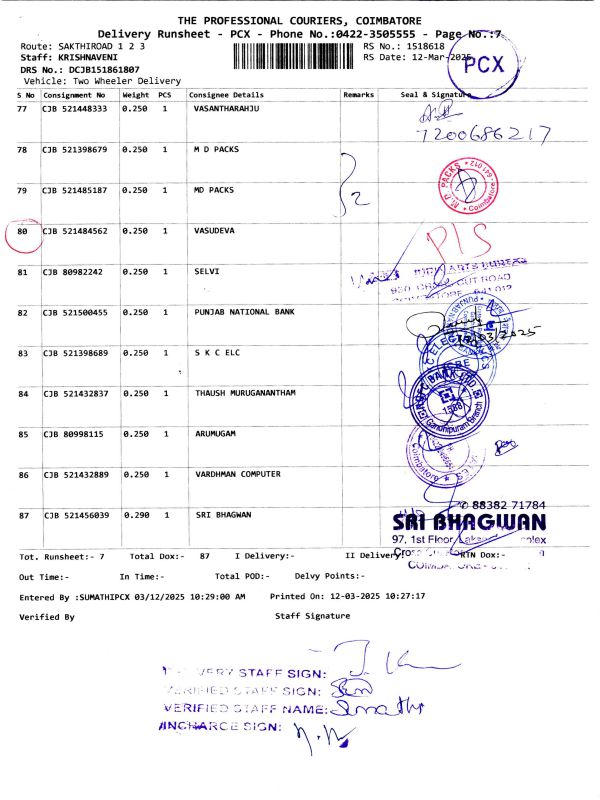 THE PROFESSIONAL COURIERS, COIMBATORE
Delivery Runsheet - PCX - Phone No.:0422-3505555 - Page No.:7
Route: SAKTHIROAD 1 2 3
RS No.: 1518618
Staff: KRISHNAVENI
RS Date: 12-Mar-2025
PCX
DRS No.: DCJB151861807
Vehicle: Two Wheeler Delivery
S No Consignment No Weight PCS Consignee Details Remarks Seal & Signature
77 CJB 521448333 0.250 1 VASANTHARAHJU
7200686217
78 CJB 521398679 0.250 1 M D PACKS
79 CJB 521485187 0.250 1 MD PACKS
2
M.D PACKS * 641 012 * Coimbatore
80 CJB 521484562 0.250 1 VASUDEVA
P/S
81 CJB 80982242 0.250 1 SELVI
82 CJB 521500455 0.250 1 PUNJAB NATIONAL BANK
12/03/2025
83 CJB 521398689 0.250 1 S K C ELC
84 CJB 521432837 0.250 1 THAUSH MURUGANANTHAM
1588
Gandhipuram Branch
85 CJB 80998115 0.250 1 ARUMUGAM
Coimbatore
86 CJB 521432889 0.250 1 VARDHMAN COMPUTER
87 CJB 521456039 0.290 1 SRI BHAGWAN
88382 71784
SRI BHAGWAN
97, 1st Floor,
Tot. Runsheet:- 7 Total Dox:- 87 I Delivery:- II Delivery:- RTN Dox:-
Out Time:- In Time:- Total POD:- Delvy Points:-
Entered By :SUMATHIPCX 03/12/2025 10:29:00 AM Printed On: 12-03-2025 10:27:17
Verified By Staff Signature
DELIVERY STAFF SIGN:
VERIFIED STAFF SIGN:
VERIFIED STAFF NAME: Sumathi
INCHARGE SIGN: